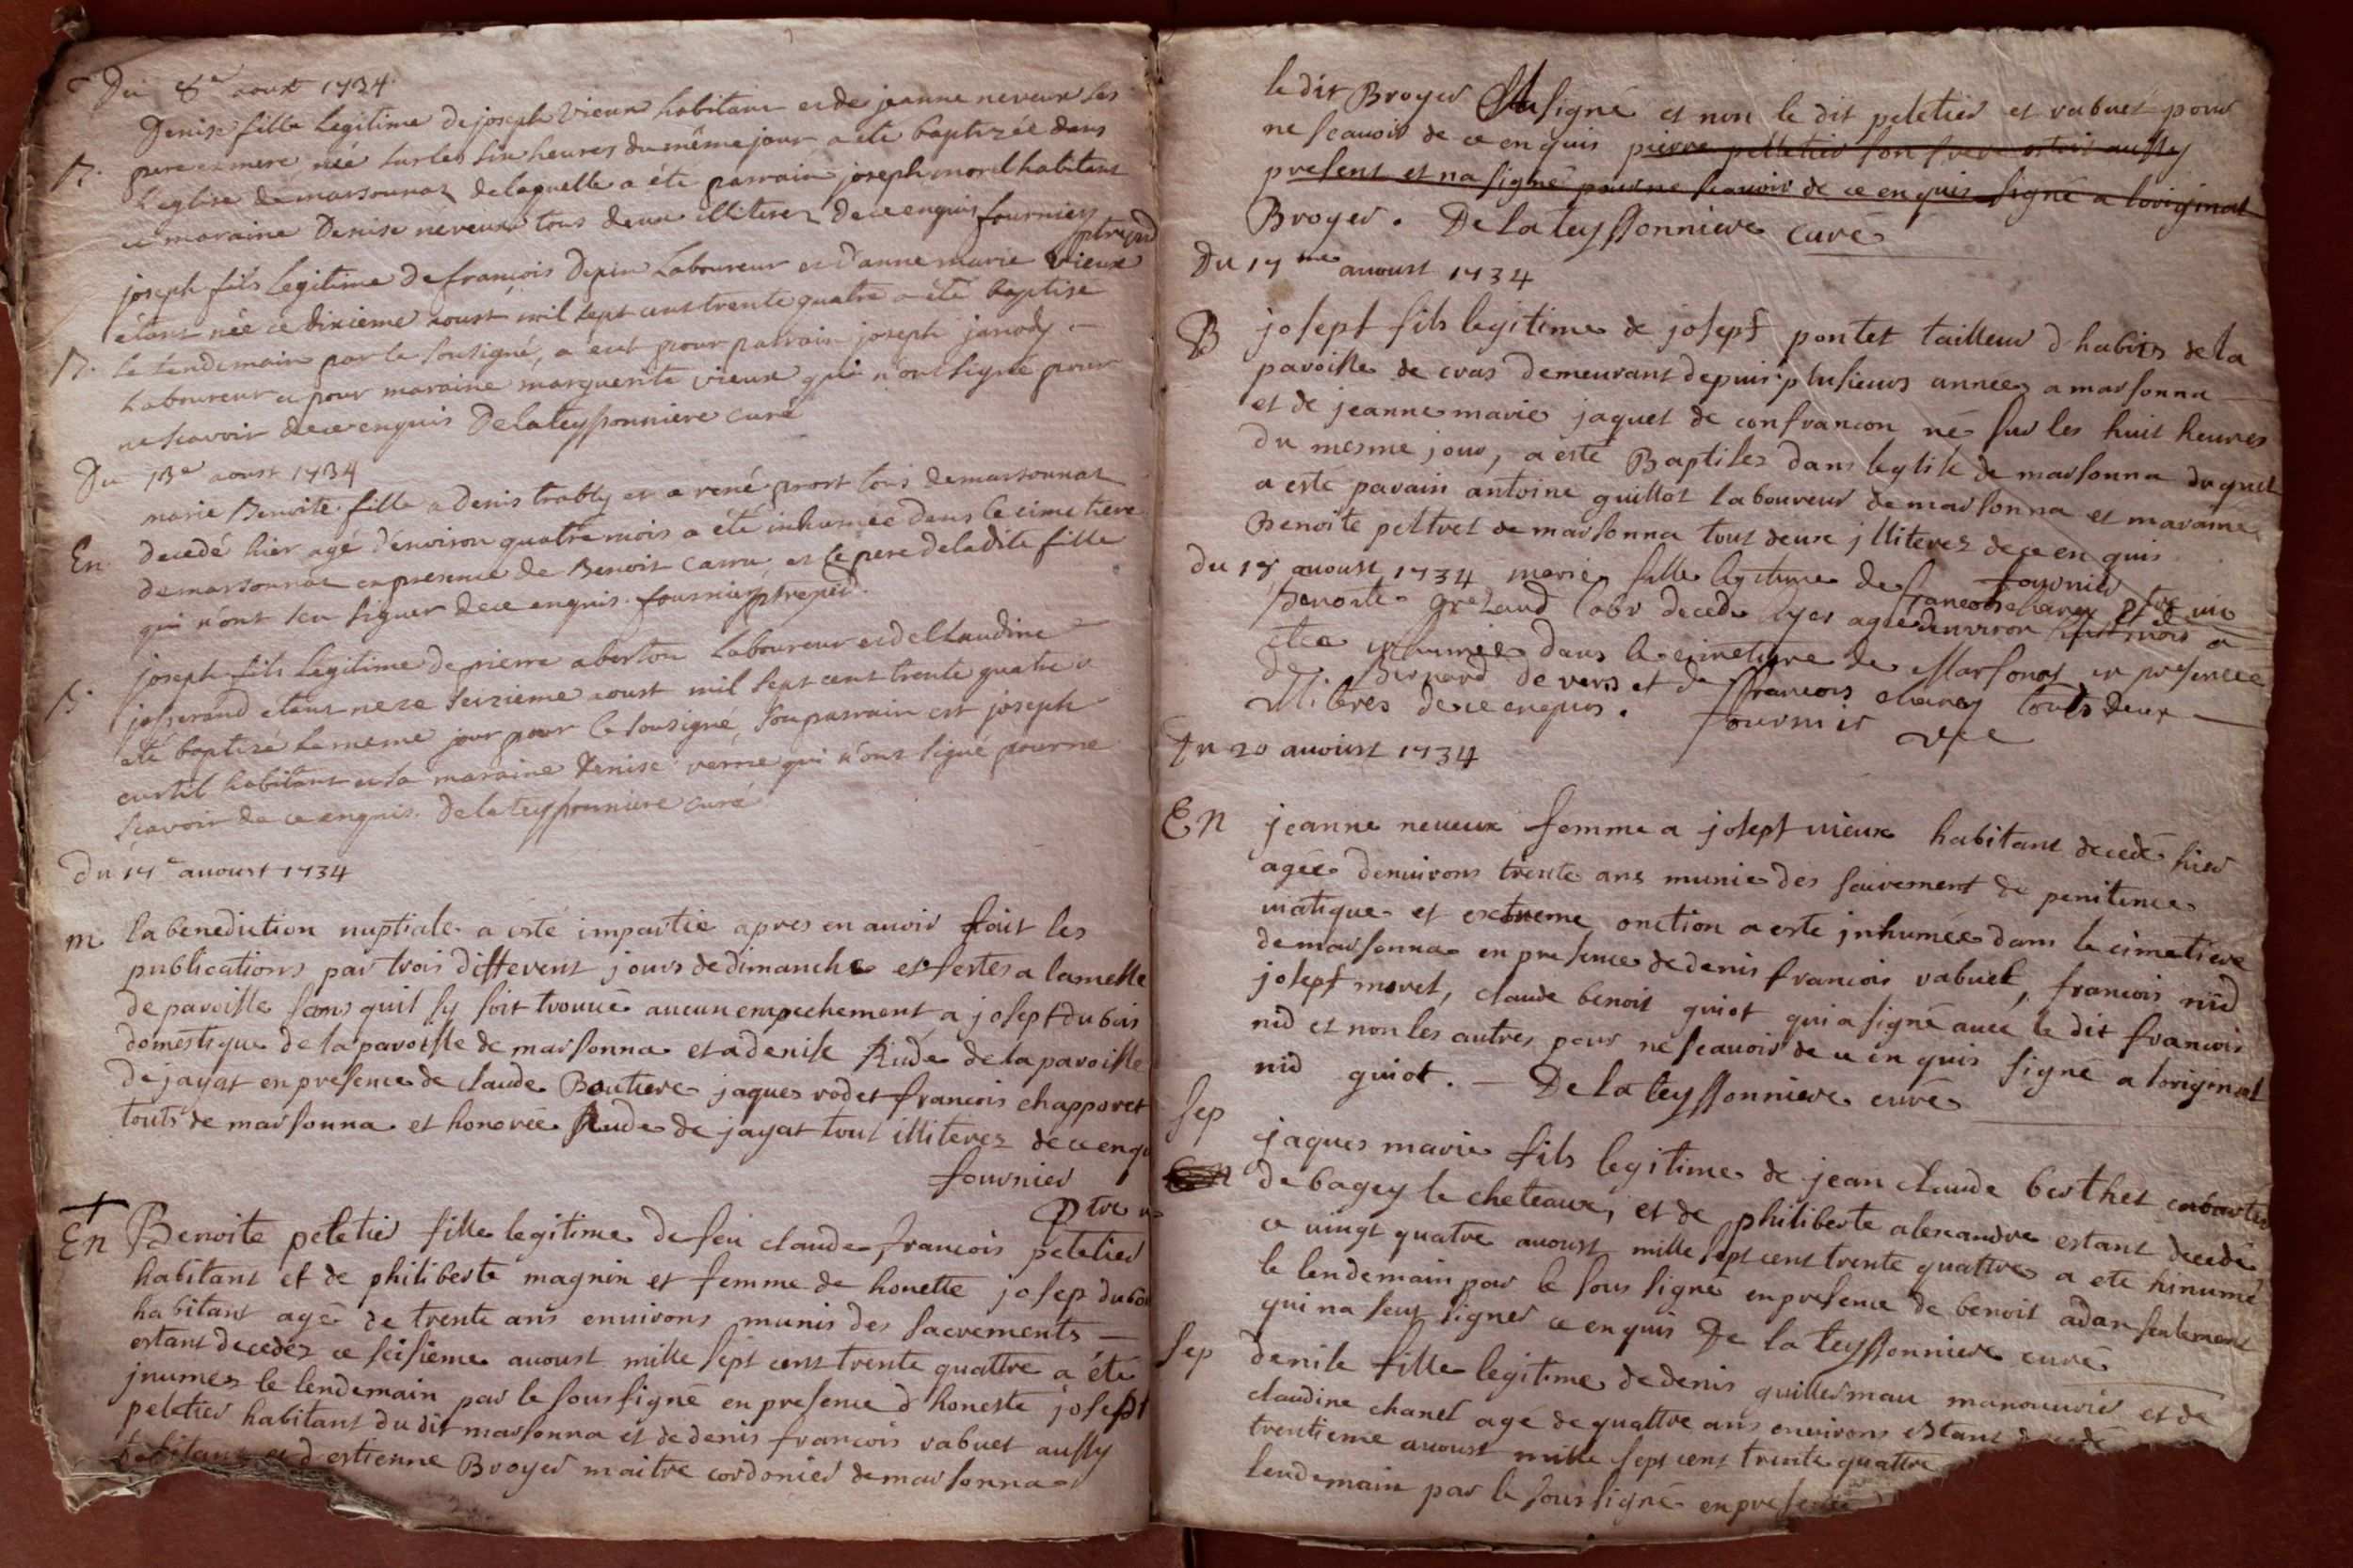 Du 8e aoust 1734.
Denise fille legitime de joseph vieux habitant et de jeanne neveux ses
B. pere et mere, née sur les six heures du même jour a été baptizée dans
l'eglise de marsonnaz de laquelle a été parrain joseph morel habitant
et maraine Denise neveux tous deux illiterez de ce enquis fournier
ptre vic
joseph fils legitime de françois Depin Laboureur et d'anne marie vieux
étant née ce dixieme aoust mil sept cent trente quatre a été baptise
B. le lendemain par le sousigné, a eut pour patrain joseph janody
Laboureur et pour maraine marguerite vieux qui n'ont signé pour
ne scavoir de ce enquis Delateyssonniere curé
Du 13e aoust 1734
marie Benoite fille a Denis trably et a rené prost tous de marsonnaz
En decedé hier agé d'environ quatre mois a été inhumée dans le cimetiere
de marsonnaz en presence de Benoit Carru et le pere de ladite fille
qui n'ont sçu signer de ce enquis. fournier ptre vic
joseph fils legitime de pierre aberton Laboureur et de Claudine
B. josserand étant né ce seizieme aoust mil sept cent trente quatre a
été baptizé le meme jour pour le sousigné, son parrain est joseph
curtil habitant et sa maraine Denise verne qui n'ont signé pour ne
scavoir de ce enquis. Delateyssonniere curé
du 17e auoust 1734
m la benediction nuptiale a esté impartie apres en auoir fait les
publications par trois different jours de dimanche et festes a la messe
de paroisse sans quil sy soit trouué aucun empechement a josept du bois
domestique de la paroisse de marsonna et a denise Rude de la paroisse
de jayat en presence de claude Boutiere jaques rodet francois chapporet
touts de marsonna et honorée Rude de jayat tout illiterez de ce enqu
fournier
ptre
En Benoite peletier fille legitime de feu claude francois peletier
habitant et de philiberte magnin et femme de honette josep dubois
habitant agé de trente ans enuirons munis des sacrements
estant decedez ce seisieme auoust mille sept cent trente quattre a été
jnumez le lendemain par le soussigné en presence d honeste josept
peletier habitant du dit marsonna et de denis francois rabuet aussy
habitant et d estienne Broyer maitre cordonier de marsonna
le dit Broyer a signé et non le dit peletier et rabuet pour
ne scauoir de ce enquis pierre pelletier son frere estoit aussy
present et na signé pour ne scauoir de ce enquis signé a loriginal
Broyer. De la teyssonniere curé
Du 17me auoust 1734
B josept fils legitime de josept pontet tailleur d habits de la
paroisse de cras demeurant depuis plusieurs années a marsonna
et de jeanne marie jaquet de confrancon né sur les huit heures
du mesme jour, a esté Baptisez dans leglise de marsonna duquel
a esté parain antoine guillot laboureur de marsonna et maraine
Benoite peltret de marsonna tout deux jlliterez de ce en quis
fournier ptre vic
du 18 auoust 1734 marie fille legitime de francois charey et de
Benoite labr decede hyer agée denviron huit mois a
etée inhumée dans le cimetiere de Marsonas en presence
de Bernard de vers et de francois charey touts deux
illiteres de ce enquis. fournier vic
Du 20 auoust 1734
En jeanne neueux femme a josept uieux habitant decedé hier
agée denuirons trente ans munie des sacrement de penitence
uiatique et extreme onction a esté jnhumee dans le cimetiere
de marsonna en presence de denis francois rabuet, francois nid
josept morel, claude benoit guiot qui a signé auec le dit francois
nid et non les autres pour ne scauoir de ce en quis signé a loriginal
nid guiot. De la teyssonniere curé
sep jaques marie fils legitime de jean claude berthet
En de bagey le cheteaux, et de philiberte alexandre estant decedé
ce uingt quatre auoust mille sept cent trente quattre a eté hinumé
le lendemain par le sous signé en presence de benoit adan seulement
qui na seut signer ce enquis De la teyssonniere curé
sep denise fille legitime de denis guillermau manouurier et de
claudine chanel agé de quattre ans enuirons estant decedé
trentieme auoust mille sept cent trente quattre
lendemain par le sous signé en presence